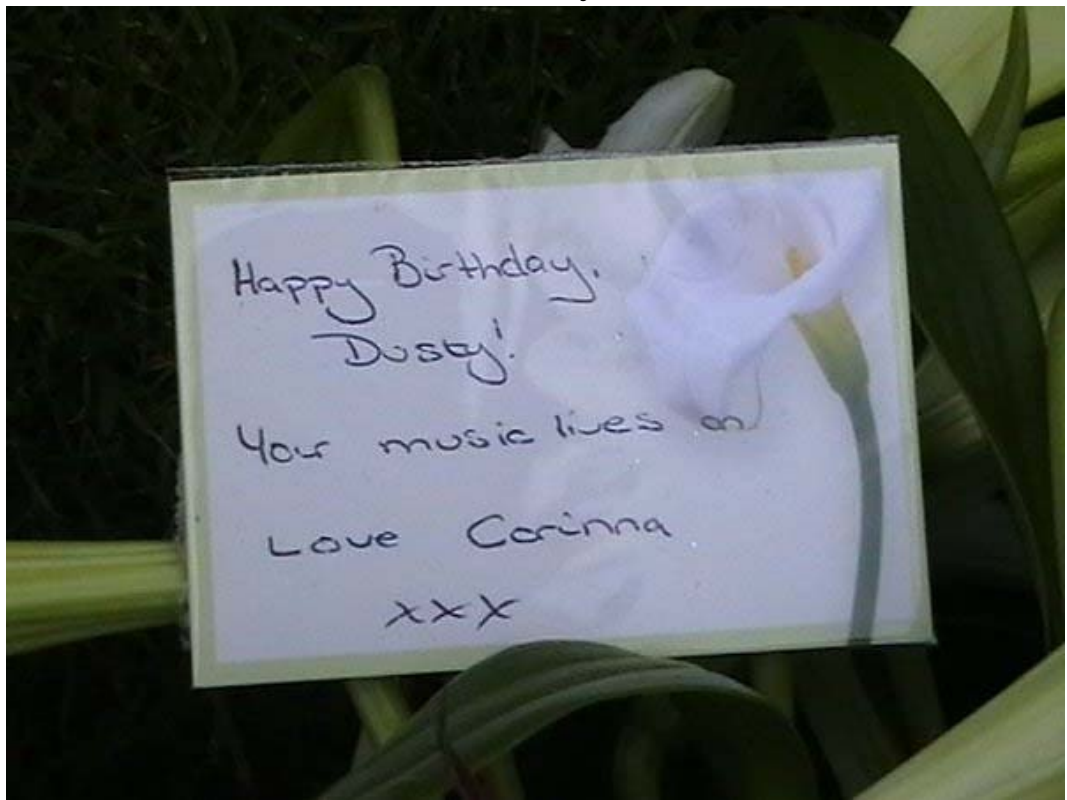 Happy Birthday.
Dusty!
Your music lives on
Love Corinna
xxx